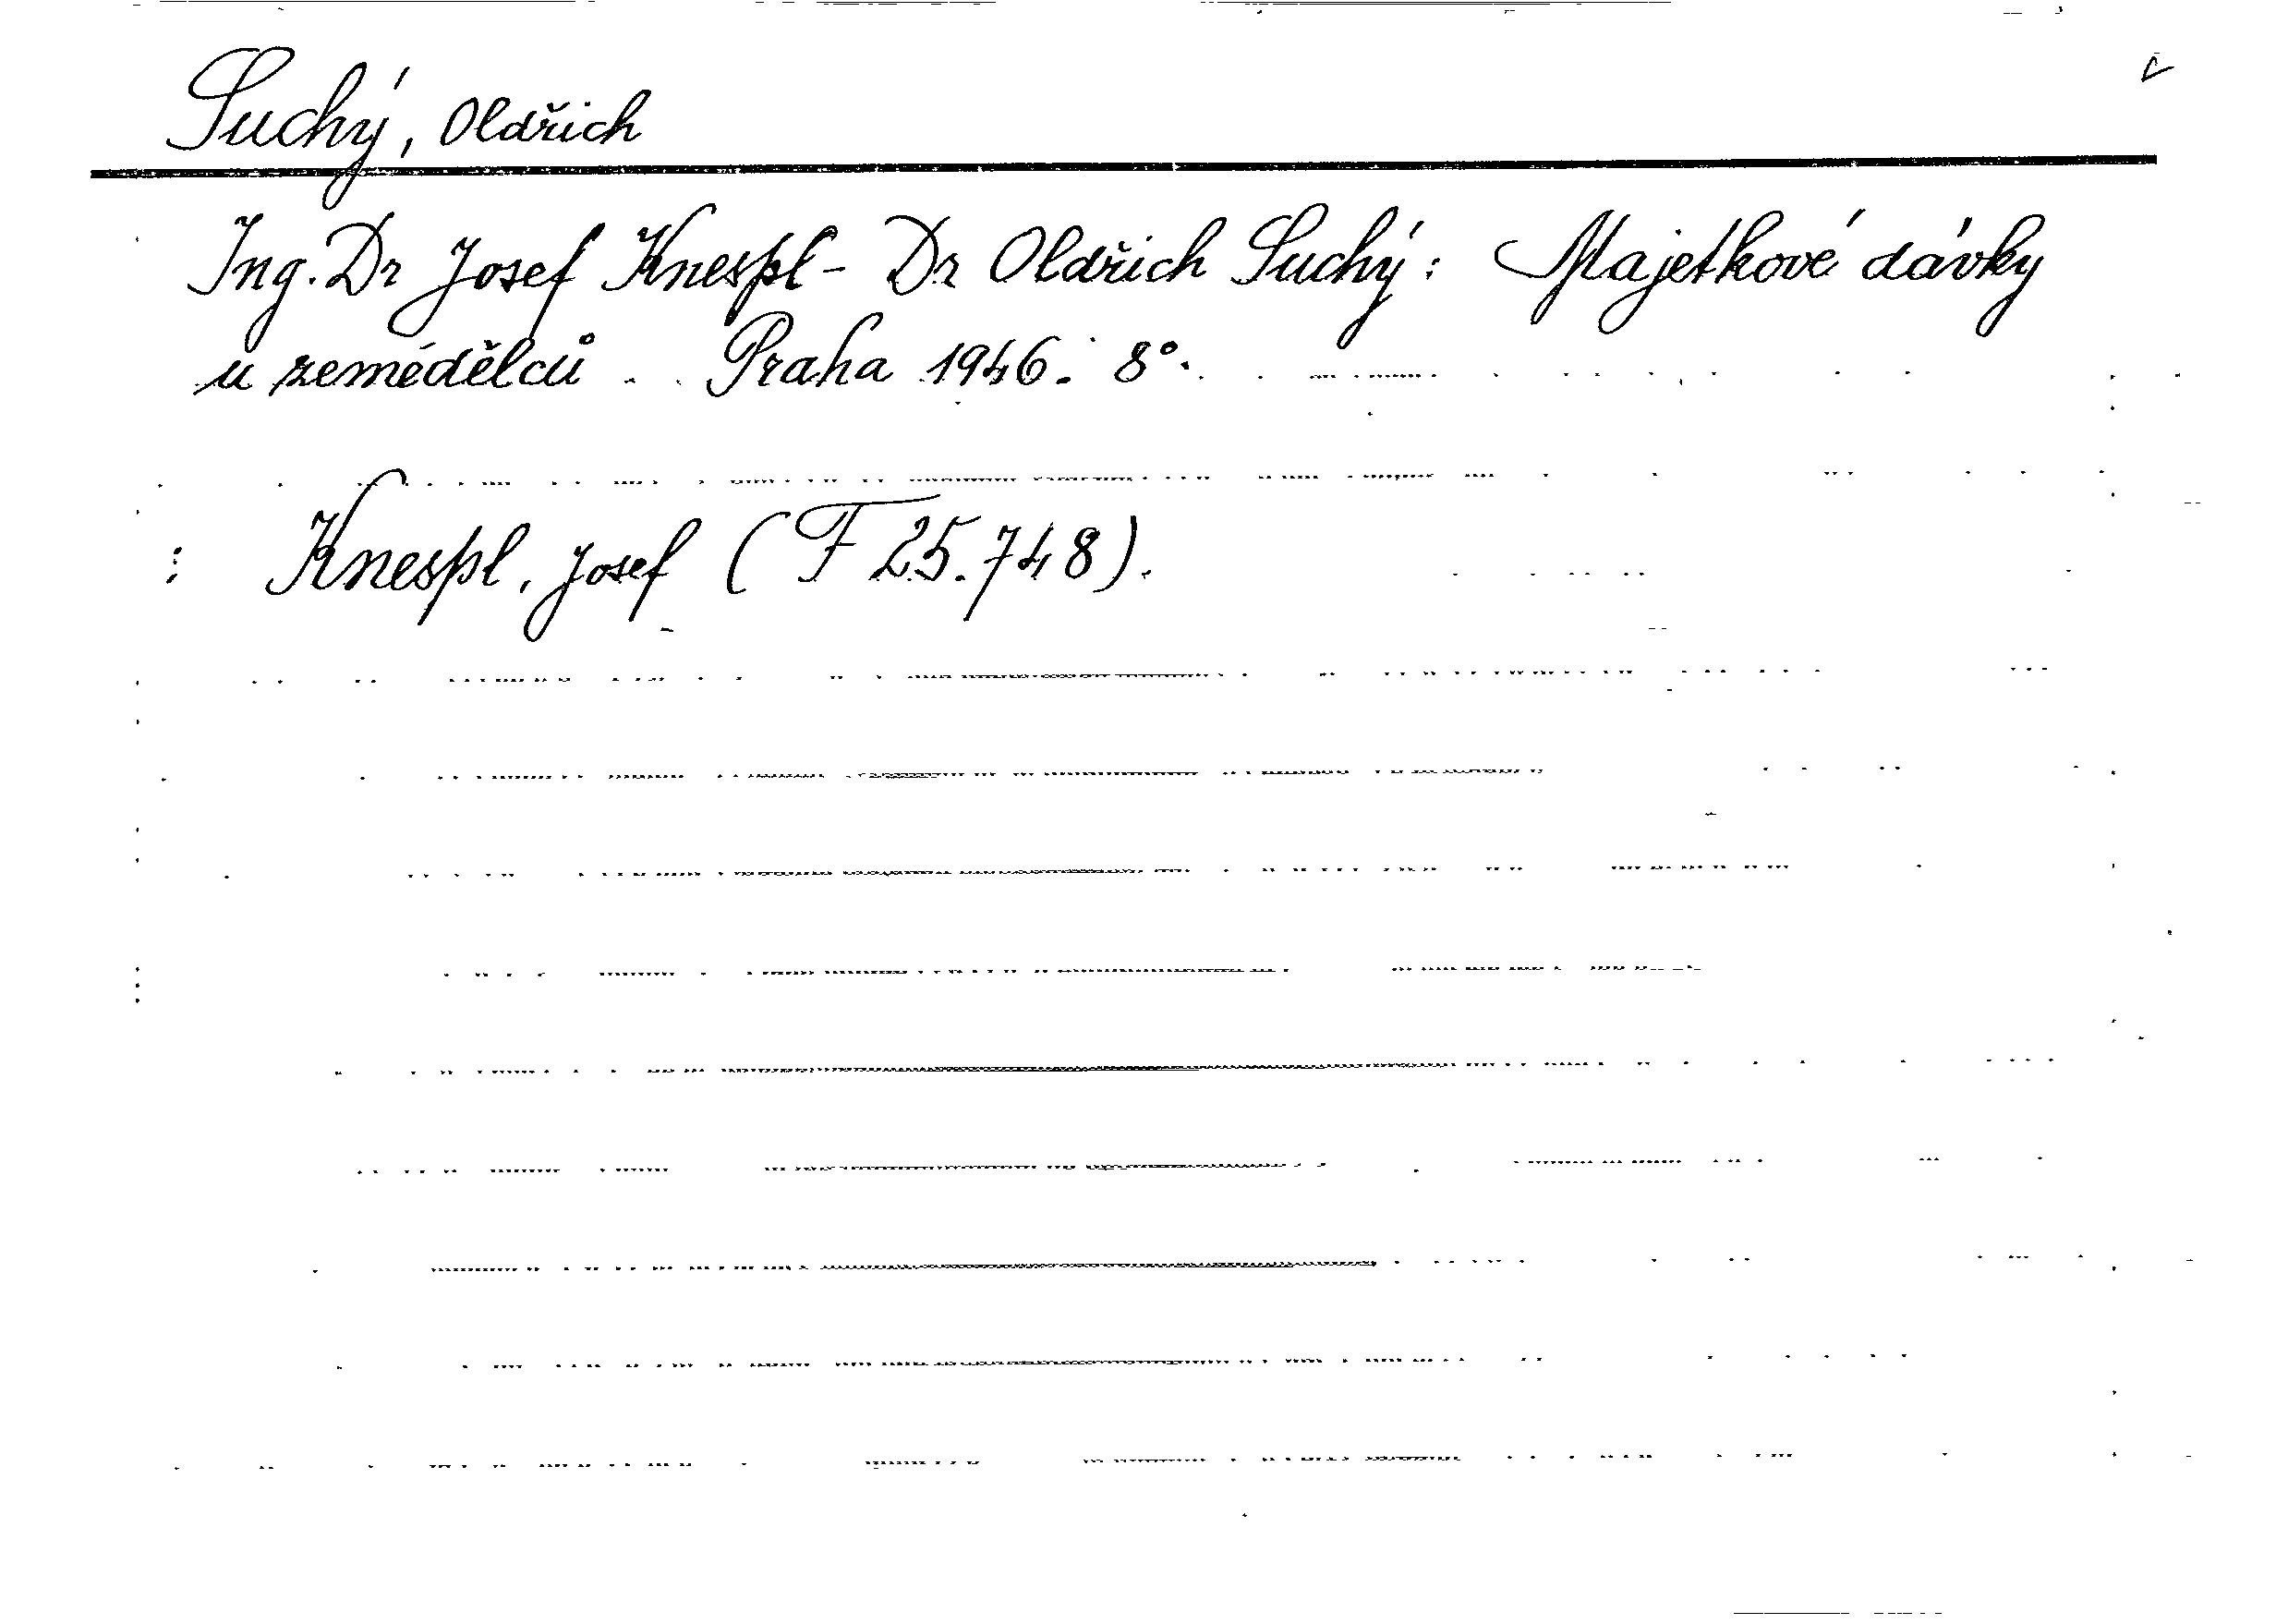 Suchý, Oldřich
Ing. Dr Josef Knespl - Dr Oldřich Suchý: Majetkové dávky
u zemědělců. Praha 1946. 8°.
: Knespl, Josef (F 25.748).